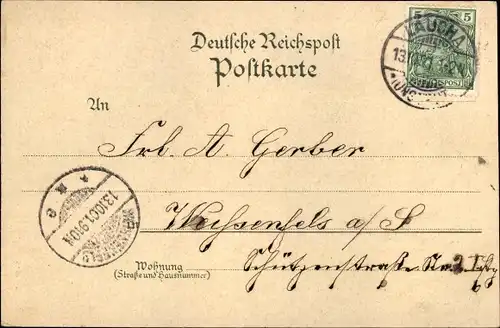 Deutsche Reichspost
Postkarte
5 5
LAUCHA
13.
REICHSPOST
An
Frl. A. Gerber
Weißenfels a/S
WEISSENFELS
13.10.01.9-10
Wohnung
(Straße und Hausnummer)
Schützenstraße